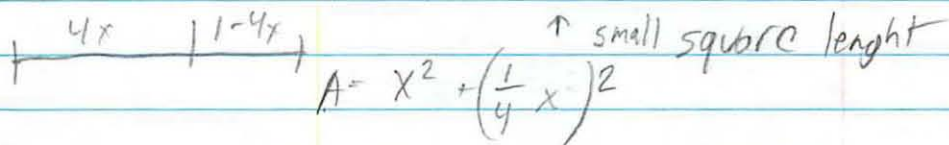 4x 1-4x ↑ small square lenght
A = x² + (1/4 x)²